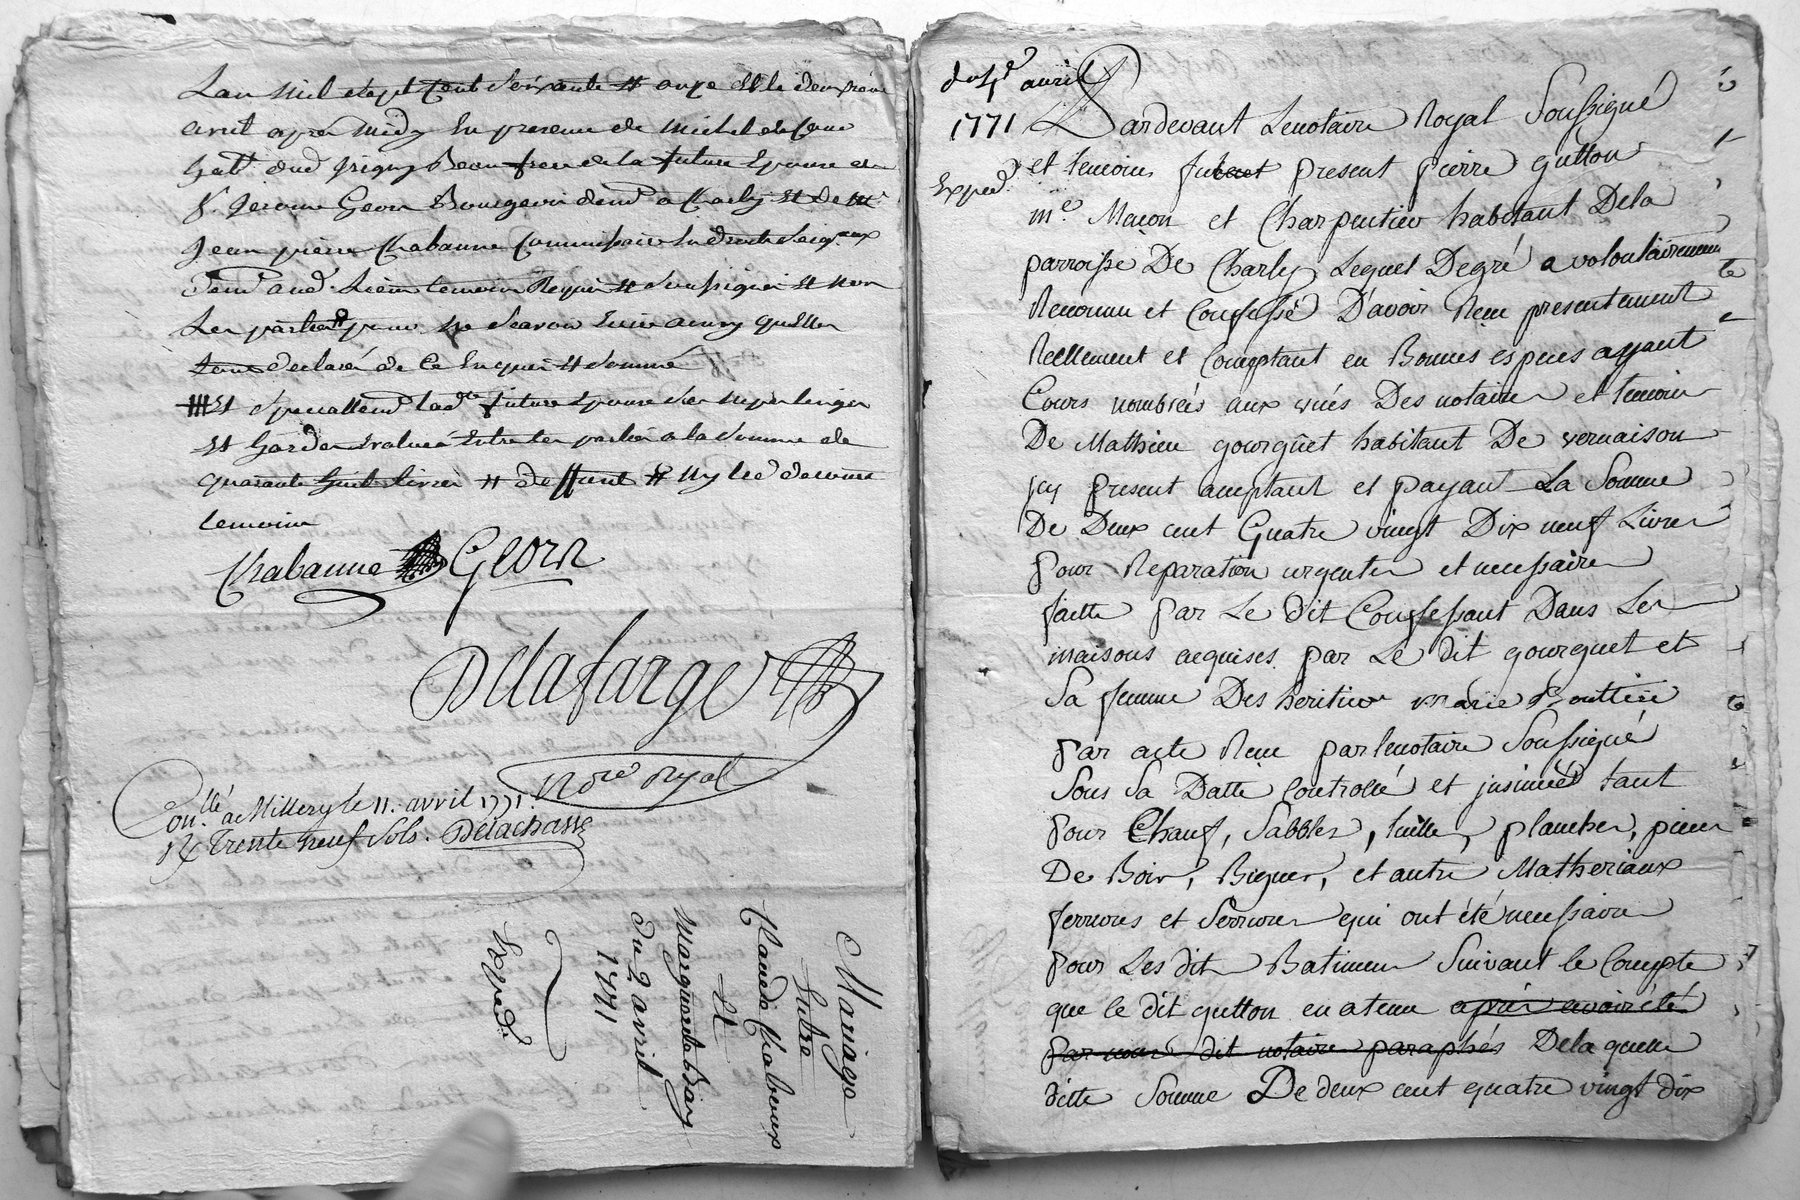 Lan mil sept cent soixante et onze et le deuxieme
avril apres midy en presence de michel
habt. aud. jrigny Beaufrere de la future Epouse et
Sr. jerome Georn Bourgeois demt. a Charly et de me.
jean pierre Chabanne Commissaire en droits seigaux
demt. aud. lieu temoins Requis et soussignes et non
les parties pour ne scavoir Ecrire ainsy quelles
lont declaré de ce Enquis et sommé
et speciallemt. ladte. future Epouse ses nipes linges
et hardes Evalués Entre les parties a la somme de
quarante huit livres
temoins
Chabanne Georn
Delafarge
Nore Royal
Conllé a Millery le 11. avril 1771.
Rx Trente neuf sols. Delachasse
Mariage
Entre
Claude Chalbeaux
Et
Marguerite
du 2 avril
1771
Expedié
du 4e avril
1771
Exped.
Pardevant Lenotaire Royal Soussigné
et temoins fut present pierre gutton
me. Macon et Charpentier habitant Dela
parroisse De Charly Lequel Degré a volontairement
Reconnu et Confessé D'avoir Receu presentement
Reellement et Comptant en Bonnes especes ayant
Cours nombrées aux vües Des notaire et temoins
De Mathieu gourguet habitant De vernaison
jcy present acceptant et payant La Somme
De Deux cent Quatre vingt Dix neuf Livres
pour Reparations urgentes et necessaires
faitte par Le dit Confessant Dans Les
maisons acquises par Le dit gourguet et
Sa femme Des heritiers marie
par acte Receu par lenotaire Soussigné
Sous Sa Datte Controllé et jnsinué tant
pour Chauf, Sabbles, tuilles, planches, pieces
De Bois, Biques, et autre Matheriaux
ferrures et Serrures qui ont été necessaire
pour Les dit Batimens Suivant le Compte
que le dit gutton en a tenu après avoir été
par nous dit notaire paraphés De la quelle
ditte Somme De deux cent quatre vingt dix